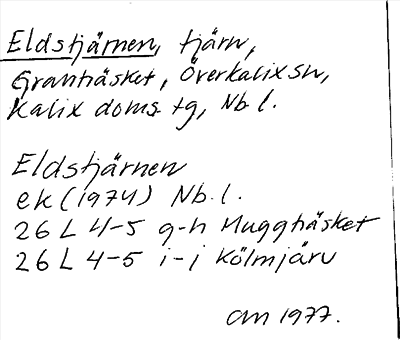 Eldstjärnen, tjärn,
Granträsket, Överkalix sn,
Kalix doms. tg, Nb l.
Eldstjärnen
ek (1974) Nb. l.
26 L 4-5 g-h Muggträsket
26 L 4-5 i-j Kölmjärv
am 1977.